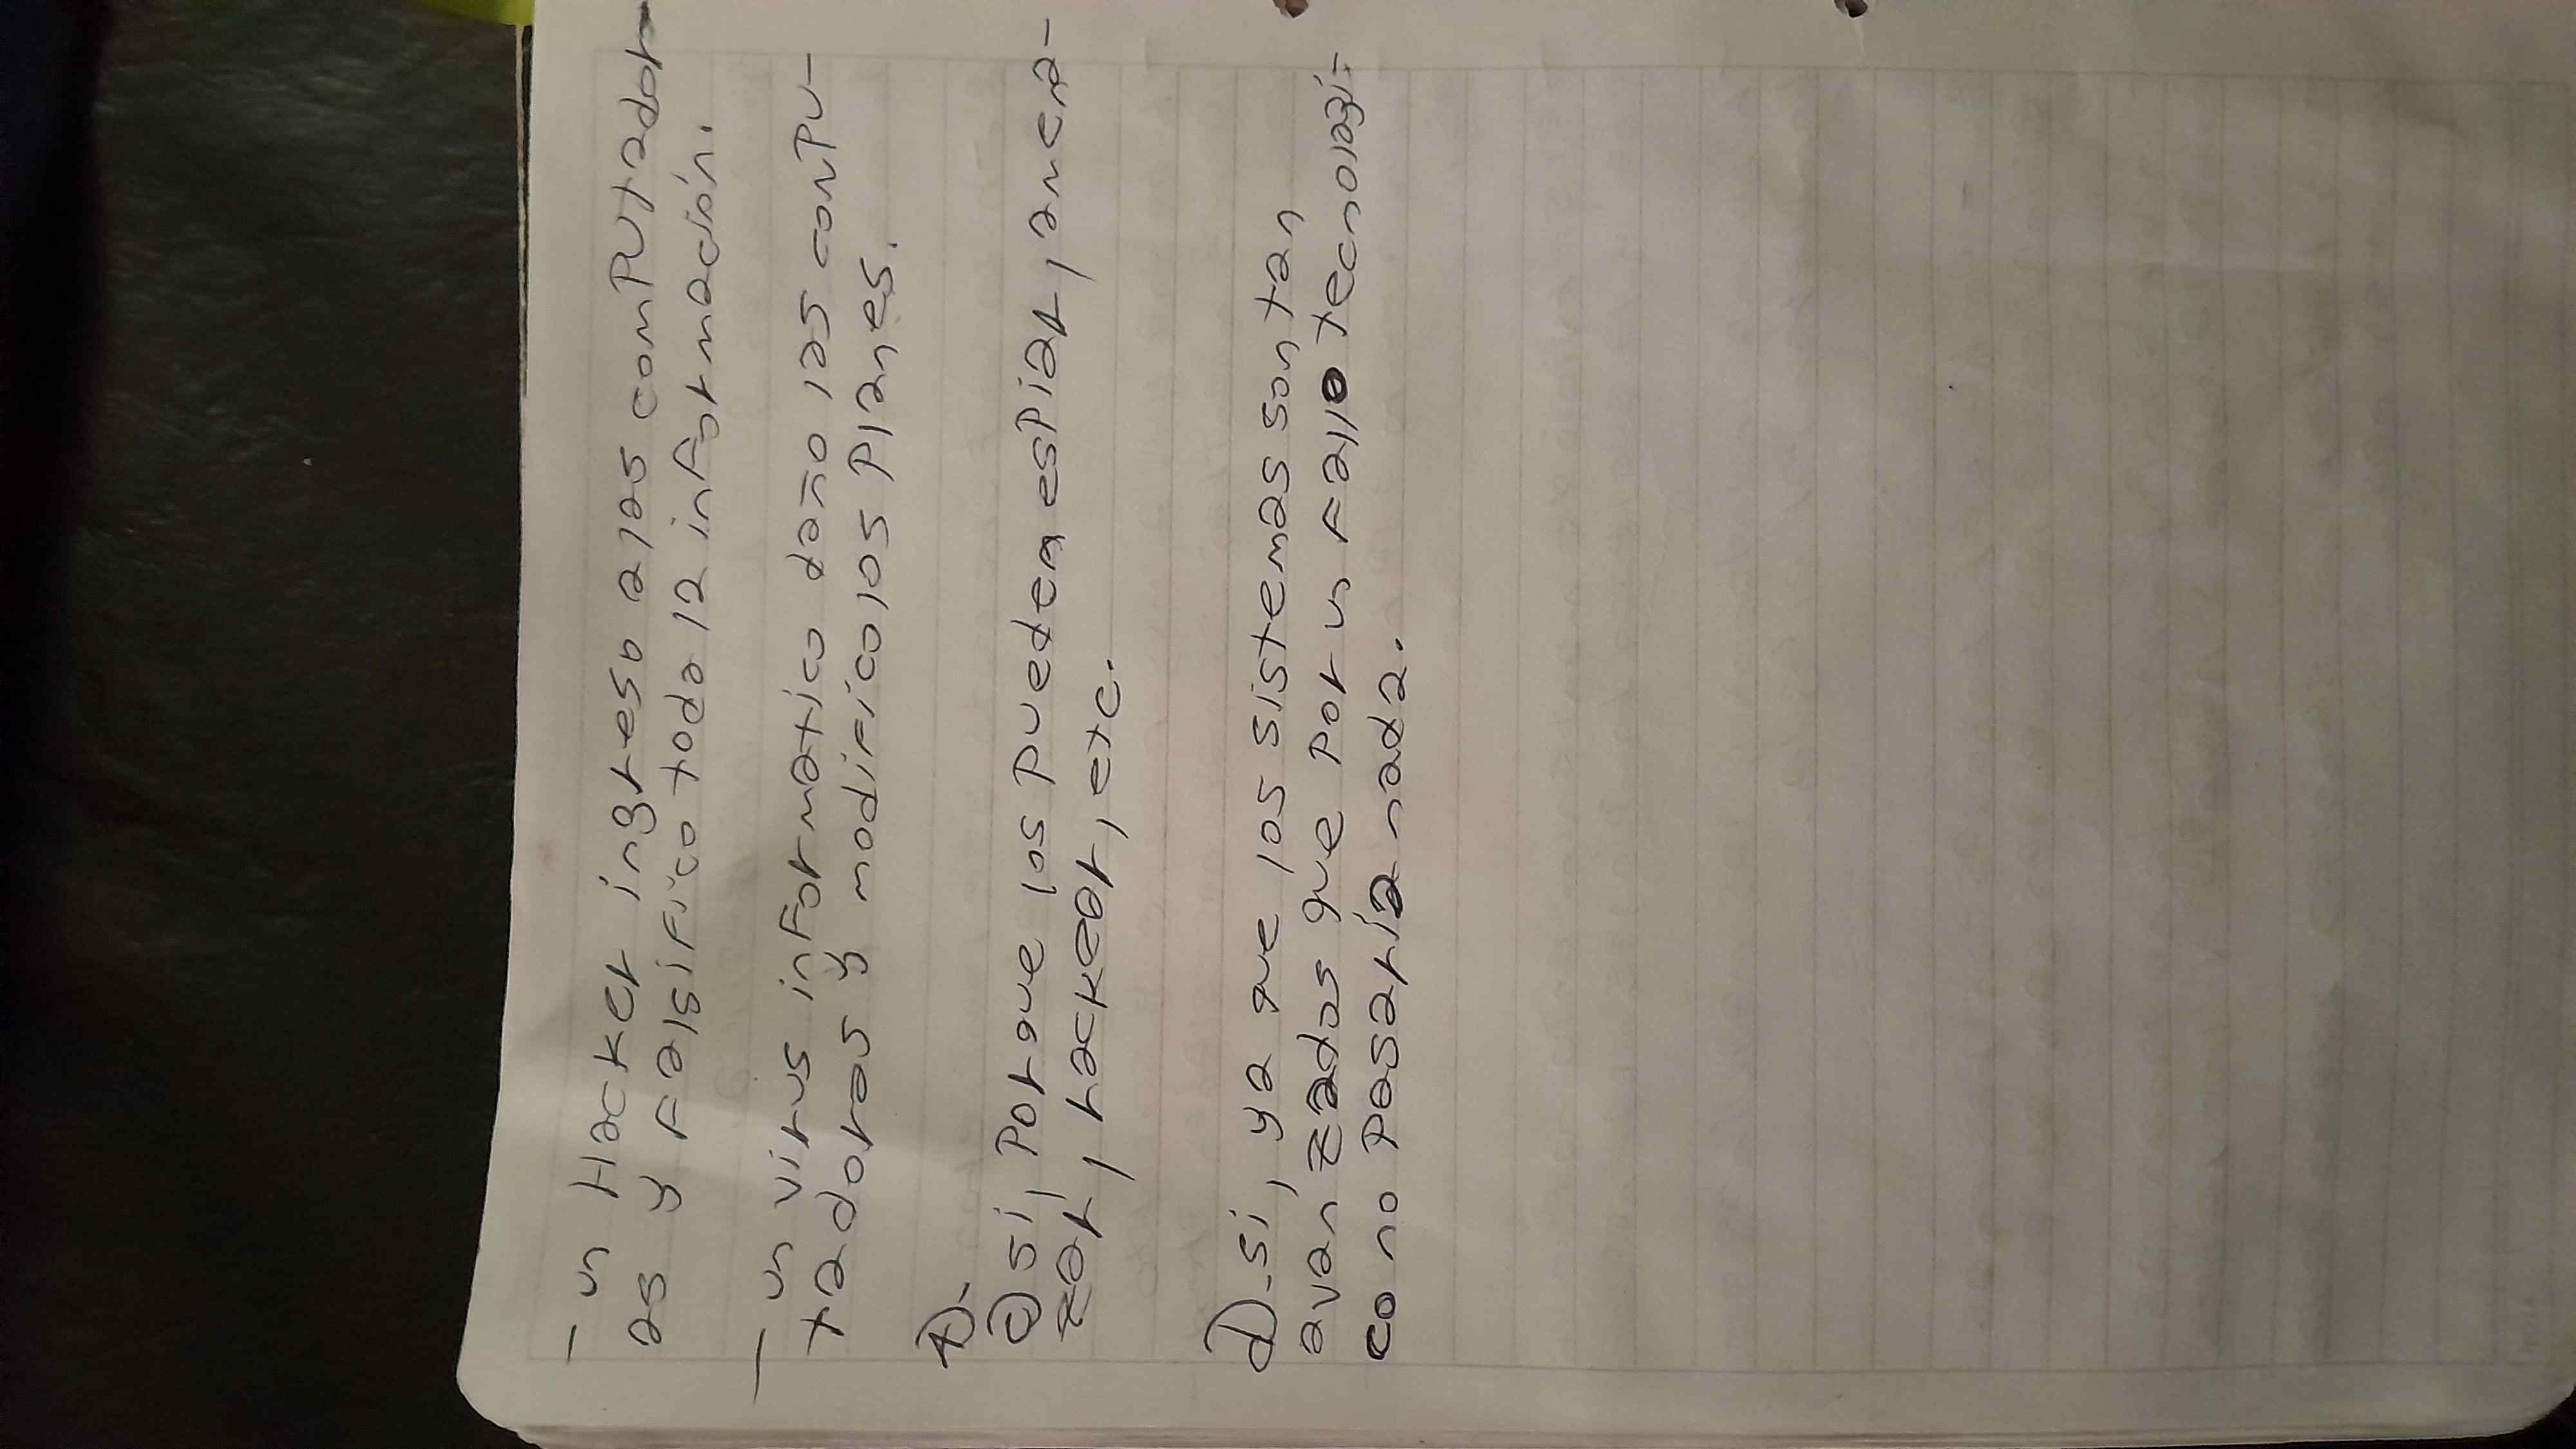 - un Hacker ingreso a las computador
as y falsifico toda la información.
- un virus informatico daño las compu-
tadoras y modifico los planes.
4).
a) si, porque los pueden espiar, amena-
zar, hackear, etc.
d). si, ya que los sistemas son tan
avanzados que por un fallo tecnologi-
co no pasaría nada.